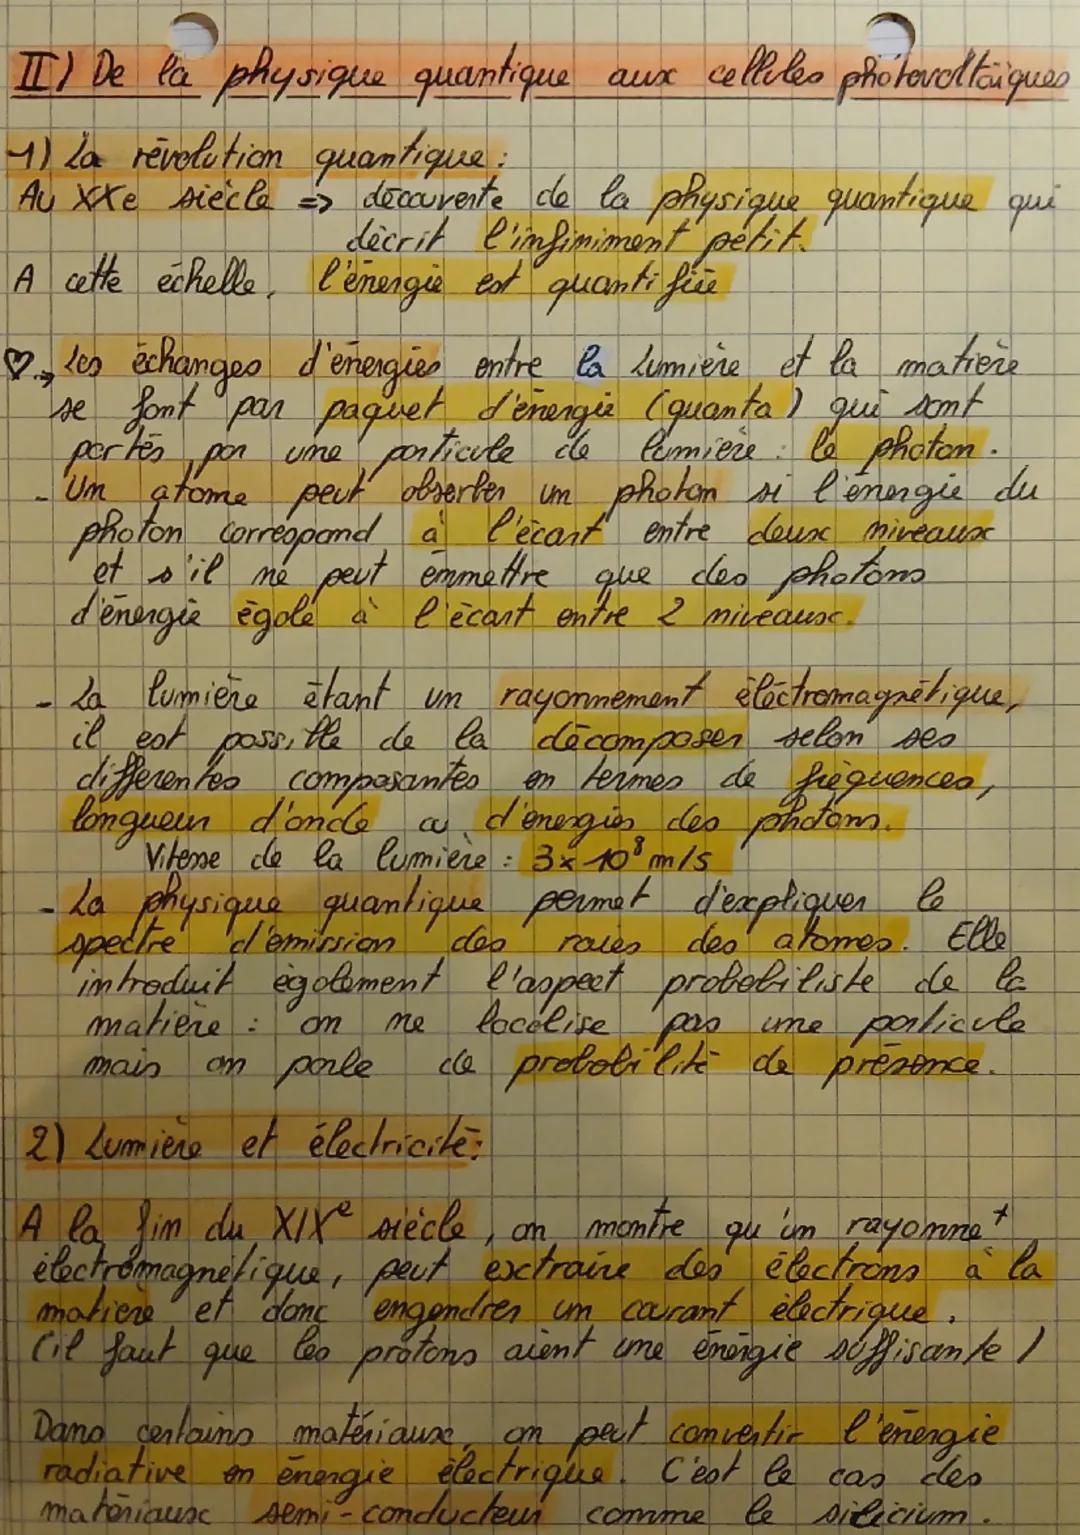 II) De la physique quantique aux cellules photovoltaïques
1) La révolution quantique :
Au XXe siècle => découverte de la physique quantique qui
décrit l'infiniment petit.
A cette échelle, l'énergie est quantifiée
♡.→ Les échanges d'énergies entre la lumière et la matière
se font par paquet d'énergie (quanta) qui sont
portés par une particule de lumière : le photon.
- Un atome peut obserber un photon si l'énergie du
photon correspond à l'écart entre deux niveaux
et s'il ne peut emmettre que des photons
d'énergie égale à l'écart entre 2 niveaux.
- La lumière étant un rayonnement électromagnétique,
il est possible de la décomposer selon ses
différentes composantes en termes de fréquences,
longueur d'onde ou d'énergies des photons.
Vitesse de la lumière : 3x10⁸ m/s
- La physique quantique permet d'expliquer le
spectre d'émission des raies des atomes. Elle
introduit également l'aspect probabiliste de la
matière : on ne localise pas une particule
mais on parle de probabilité de présence.
2) Lumière et électricité :
A la fin du XIXe siècle, on montre qu'un rayonne+
électromagnétique, peut extraire des électrons à la
matière et donc engendrer un courant électrique.
(il faut que les protons aient une énergie suffisante)
Dans certains matériaux, on peut convertir l'énergie
radiative en énergie électrique. C'est le cas des
matériaux semi-conducteur comme le silicium.